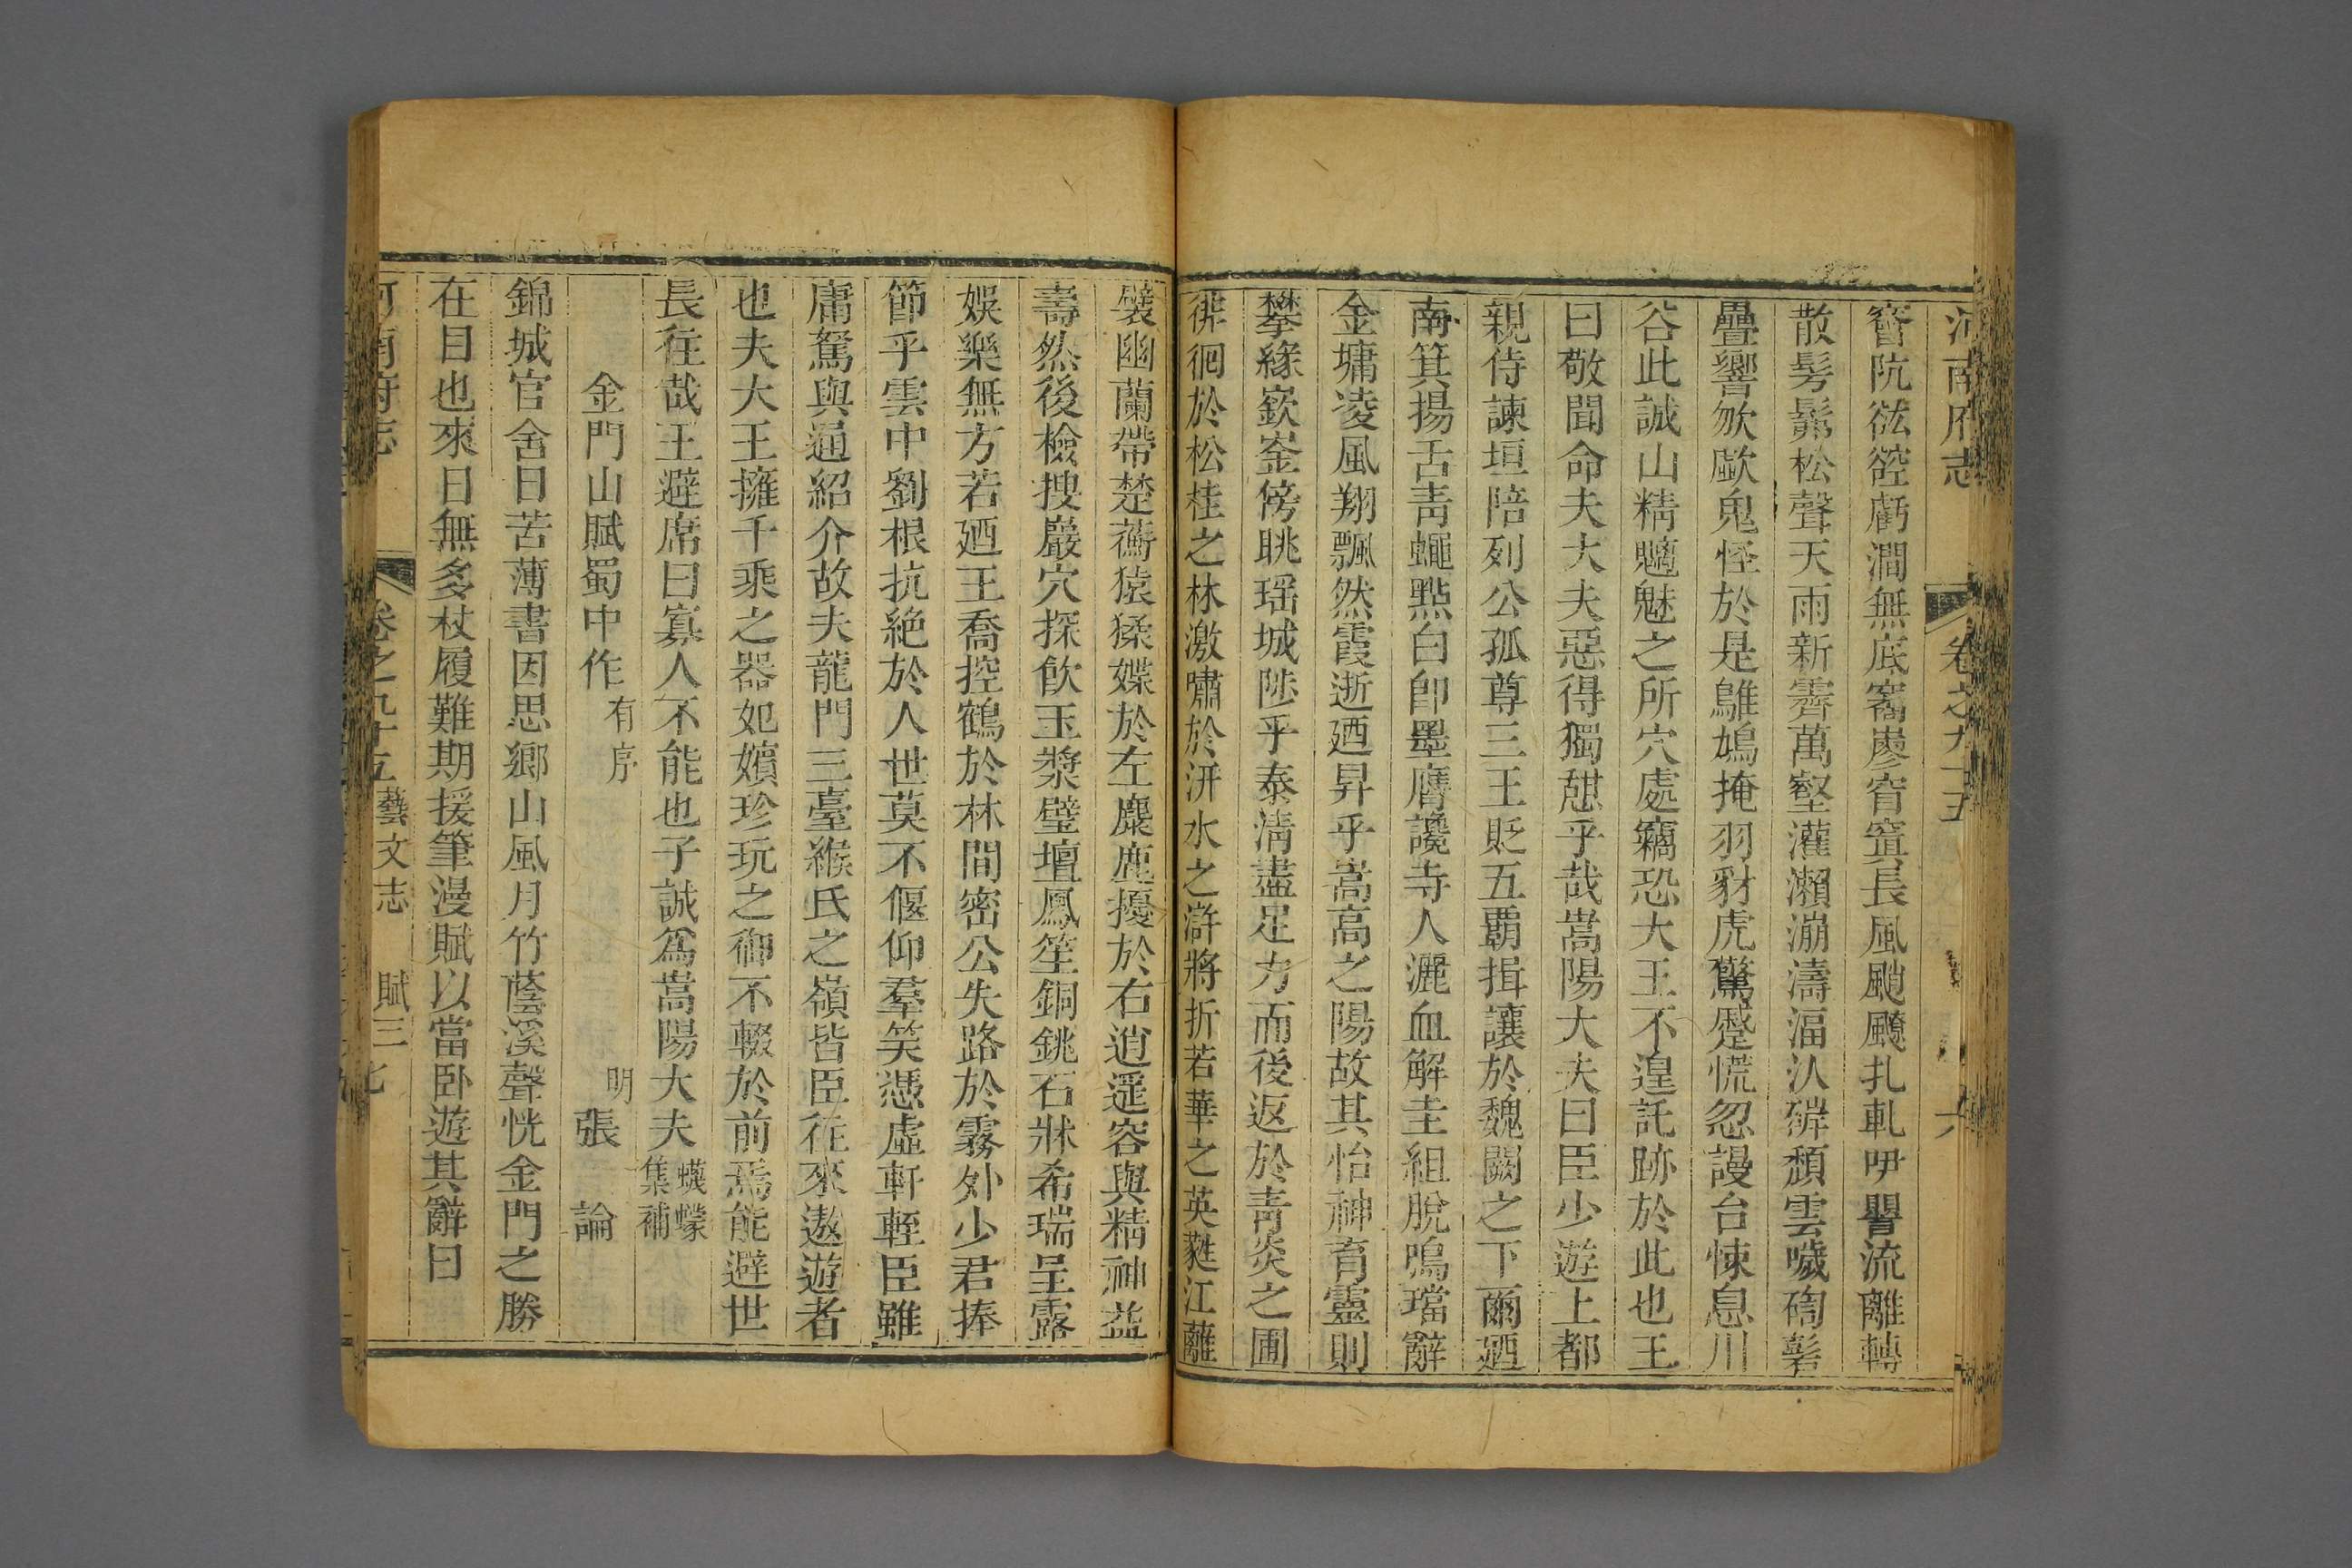 河南府志 卷之九十五 六
窨阬㳒谾虧澗無底窰嵺窅窴長風颲飀扎軋吚譻流離轉
散髣髴松聲天雨新霽萬壑灌瀨漰濤湢汃硸頹雲噦磤髼
疊響欻歐鬼怪於是鶵鳩掩羽豺虎驚蹙慌忽謾台悚息川
谷此誠山精魑魅之所穴處竊恐大王不遑託跡於此也王
曰敬聞命夫大夫惡得獨憇乎哉嵩陽大夫曰臣少遊上都
親侍諫垣陪列公孤尊三王貶五覇揖讓於魏闕之下爾廼
南箕揚舌青蠅㸃白卽墨膺讒寺人灑血解圭組脫鳴璫辭
金墉凌風翔飄然霞逝廼昇乎嵩高之陽故其怡神育靈則
攀緣嶔崟傍眺瑶城陟乎泰淸盡足力而後返於靑炎之圃
徘徊於松桂之林激嘯於汧水之滸將折若華之英蕤江蘺
襞幽蘭帶楚蘅猿猱媟於左麋麈擾於右逍遥容與精神益
壽然後檢搜巖穴探飮玉漿璧壇鳳笙銅銚石牀希瑞呈露
娛樂無方若廼王喬控鶴於林間密公失路於霧外少君捧
節乎雲中劉根抗絶於人世莫不偃仰羣笑憑虛軒輊臣雖
庸駑與通紹介故夫龍門三臺緱氏之嶺皆臣徃來遨遊者
也夫大王擁千乘之器妃嬪珍玩之御不輟於前焉能避世
長徃哉王避席曰寡人不能也子誠爲嵩陽大夫 蠛蠓集補
金門山賦蜀中作 有序 明 張 論
錦城官舍日苦薄書因思鄉山風月竹蔭溪聲恍金門之勝
在目也來日無多杖履難期援筆漫賦以當卧遊其辭曰
河南府志 卷之九十五 藝文志 賦三 七